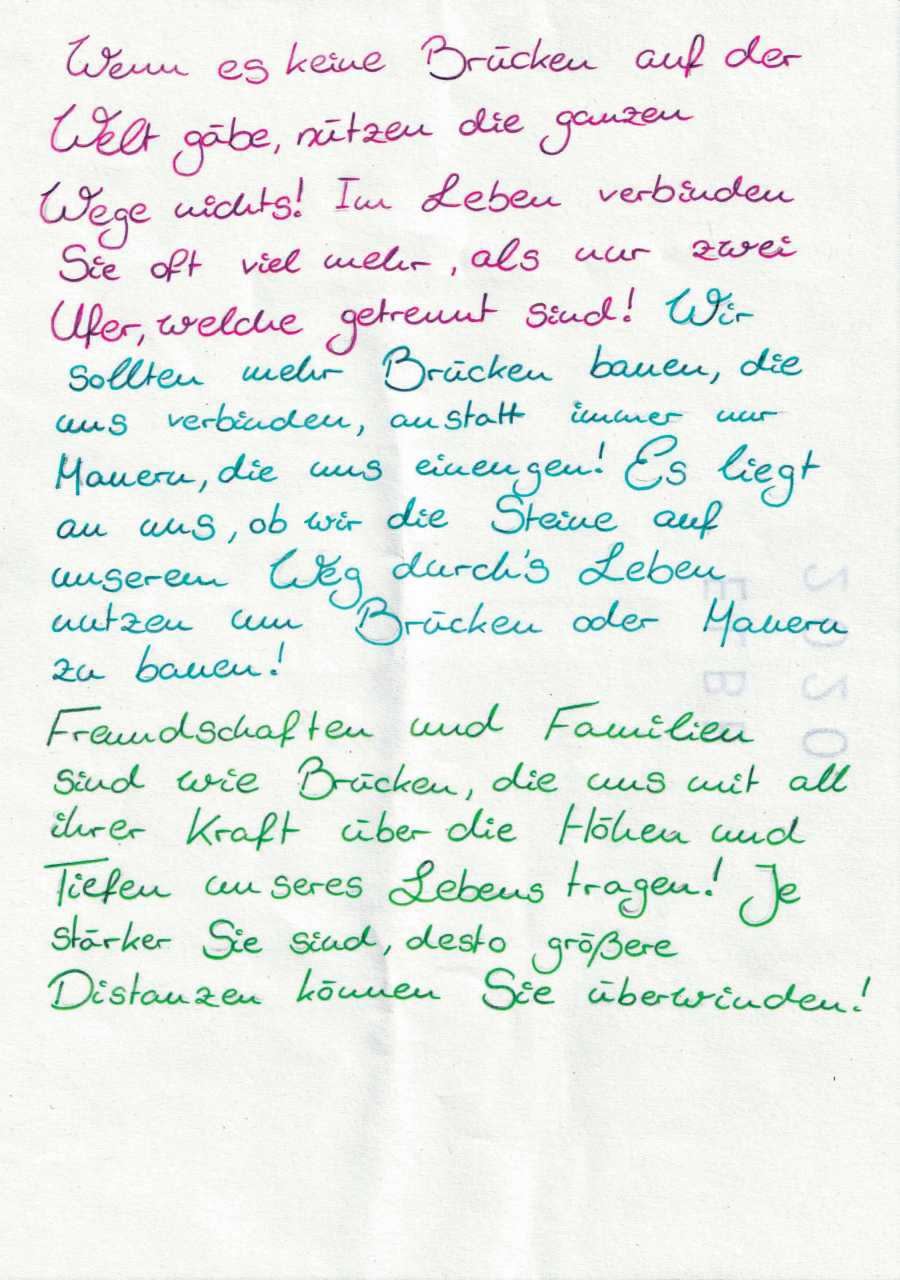 Wenn es keine Brücken auf der
Welt gäbe, nützen die ganzen
Wege nichts! Im Leben verbinden
Sie oft viel mehr, als nur zwei
Ufer, welche getrennt sind! Wir
sollten mehr Brücken bauen, die
uns verbinden, anstatt immer nur
Mauern, die uns einengen! Es liegt
an uns, ob wir die Steine auf
unserem Weg durch's Leben
nutzen um Brücken oder Mauern
zu bauen!
Freundschaften und Familien
sind wie Brücken, die uns mit all
ihrer Kraft über die Höhen und
Tiefen unseres Lebens tragen! Je
stärker Sie sind, desto größere
Distanzen können Sie überwinden!